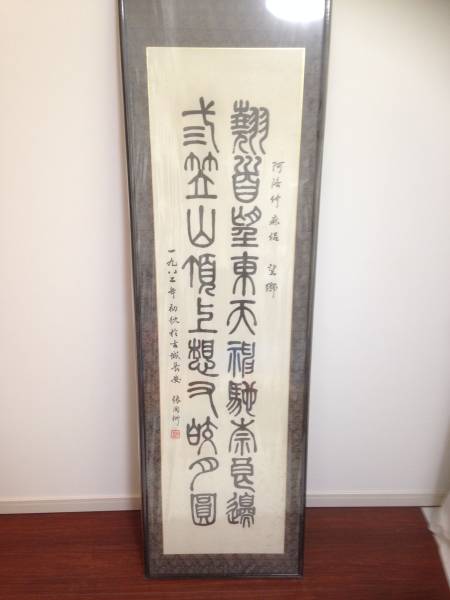 阿倍仲麻侶 望鄉
翹首望東天神馳奈良邊
弎笠山頂上想又皎月圓
一九八二年初秋於古城長安 張